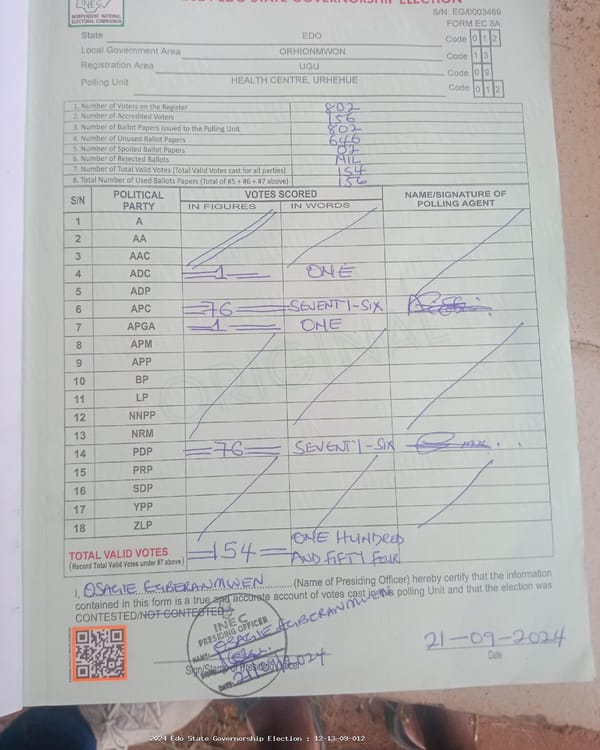 INEC
INDEPENDENT NATIONAL
ELECTORAL COMMISSION
EDO STATE GOVERNORSHIP ELECTION
S/N: EG/0003469
FORM EC 8A
State EDO Code 0 1 2
Local Government Area ORHIONMWON Code 1 3
Registration Area UGU Code 0 9
Polling Unit HEALTH CENTRE, URHEHUE Code 0 1 2
1. Number of Voters on the Register 802
2. Number of Accredited Voters 156
3. Number of Ballot Papers Issued to the Polling Unit 802
4. Number of Unused Ballot Papers 646
5. Number of Spoiled Ballot Papers 02
6. Number of Rejected Ballots NIL
7. Number of Total Valid Votes (Total Valid Votes cast for all parties) 154
8. Total Number of Used Ballots Papers (Total of #5 + #6 + #7 above) 156
S/N POLITICAL PARTY VOTES SCORED NAME/SIGNATURE OF POLLING AGENT
IN FIGURES IN WORDS
1 A
2 AA
3 AAC
4 ADC =1= ONE
5 ADP
6 APC =76= SEVENTY-SIX
7 APGA =1= ONE
8 APM
9 APP
10 BP
11 LP
12 NNPP
13 NRM
14 PDP =76= SEVENTY-SIX
15 PRP
16 SDP
17 YPP
18 ZLP
ORIGINAL
TOTAL VALID VOTES =154= ONE HUNDRED
(Record Total Valid Votes under #7 above) AND FIFTY FOUR
I, OSAGIE EGBERANMWEN (Name of Presiding Officer) hereby certify that the information
contained in this form is a true and accurate account of votes cast in this polling Unit and that the election was
CONTESTED/NOT CONTESTED
INEC
PRESIDING OFFICER
NAME: OSAGIE EGBERANMWEN
DATE: 21/09/2024
Sign/Stamp of Presiding Officer
21-09-2024
Date
2024 Edo State Governorship Election : 12-13-09-012